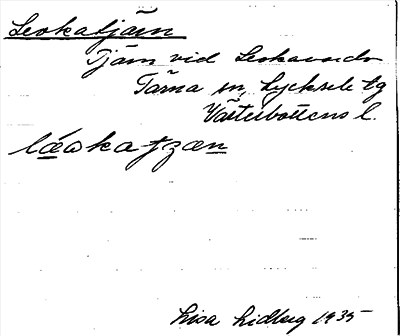 Leokatjärn
Tjärn vid Leokavardo
Tärna sn, Lycksele tg
Västerbottens l.
Lisa Lidberg 1935